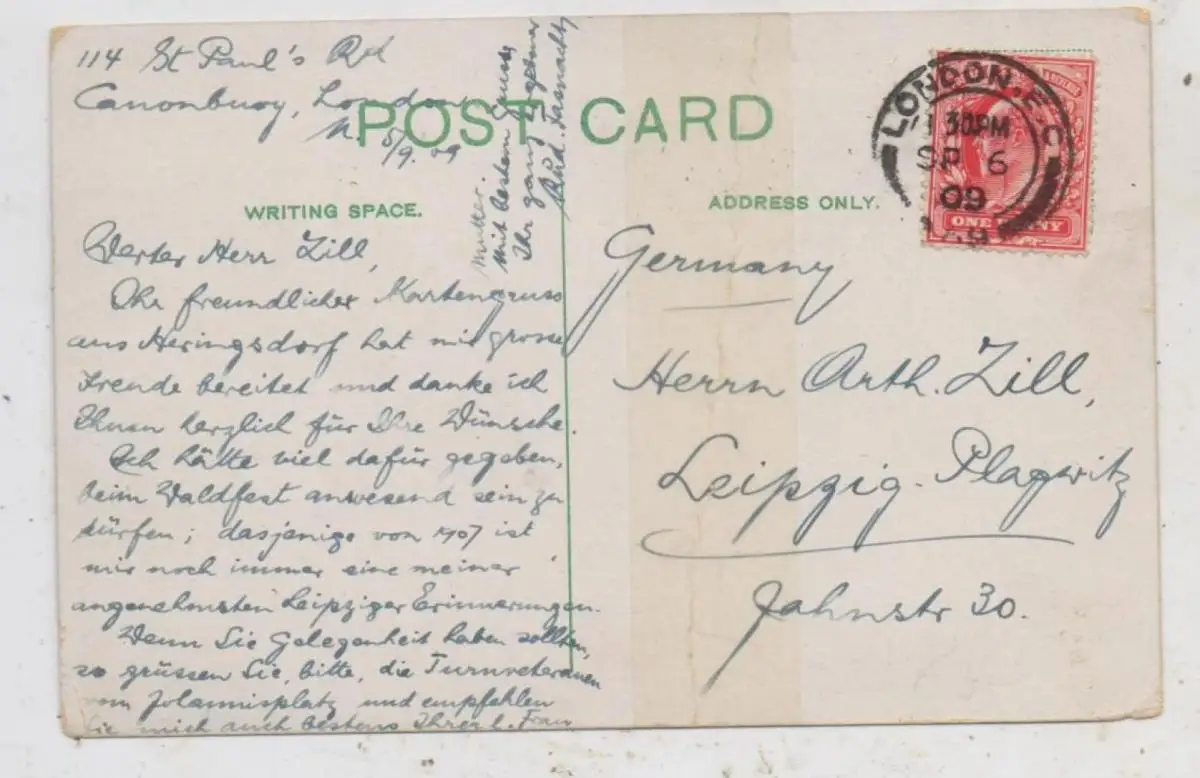 114 St Paul's Rd
Canonbury, London
N. 5/9. 09
POST CARD
WRITING SPACE.
ADDRESS ONLY.
Werter Herr Zill,
Ihr freundlicher Kartengruss
aus Heringsdorf hat mir grosse
Freude bereitet und danke ich
Ihnen herzlich für Ihre Wünsche.
Ich hätte viel dafür gegeben,
beim Waldfest anwesend sein zu
dürfen; dasjenige von 1907 ist
mir noch immer eine meiner
angenehmsten Leipziger Erinnerungen.
Wenn Sie Gelegenheit haben sollten,
so grüssen Sie, bitte, die Turnveteranen
vom Johannisplatz und empfehlen
Sie mich auch bestens Ihrer l. Frau
Mutter.
Mit bestem Gruss,
Ihr ganz ergebener
Rud.
LONDON. E.C
1 30PM
SP 6
09
ONE PENNY
Germany
Herrn Arth. Zill,
Leipzig-Plagwitz
Jahnstr 30.